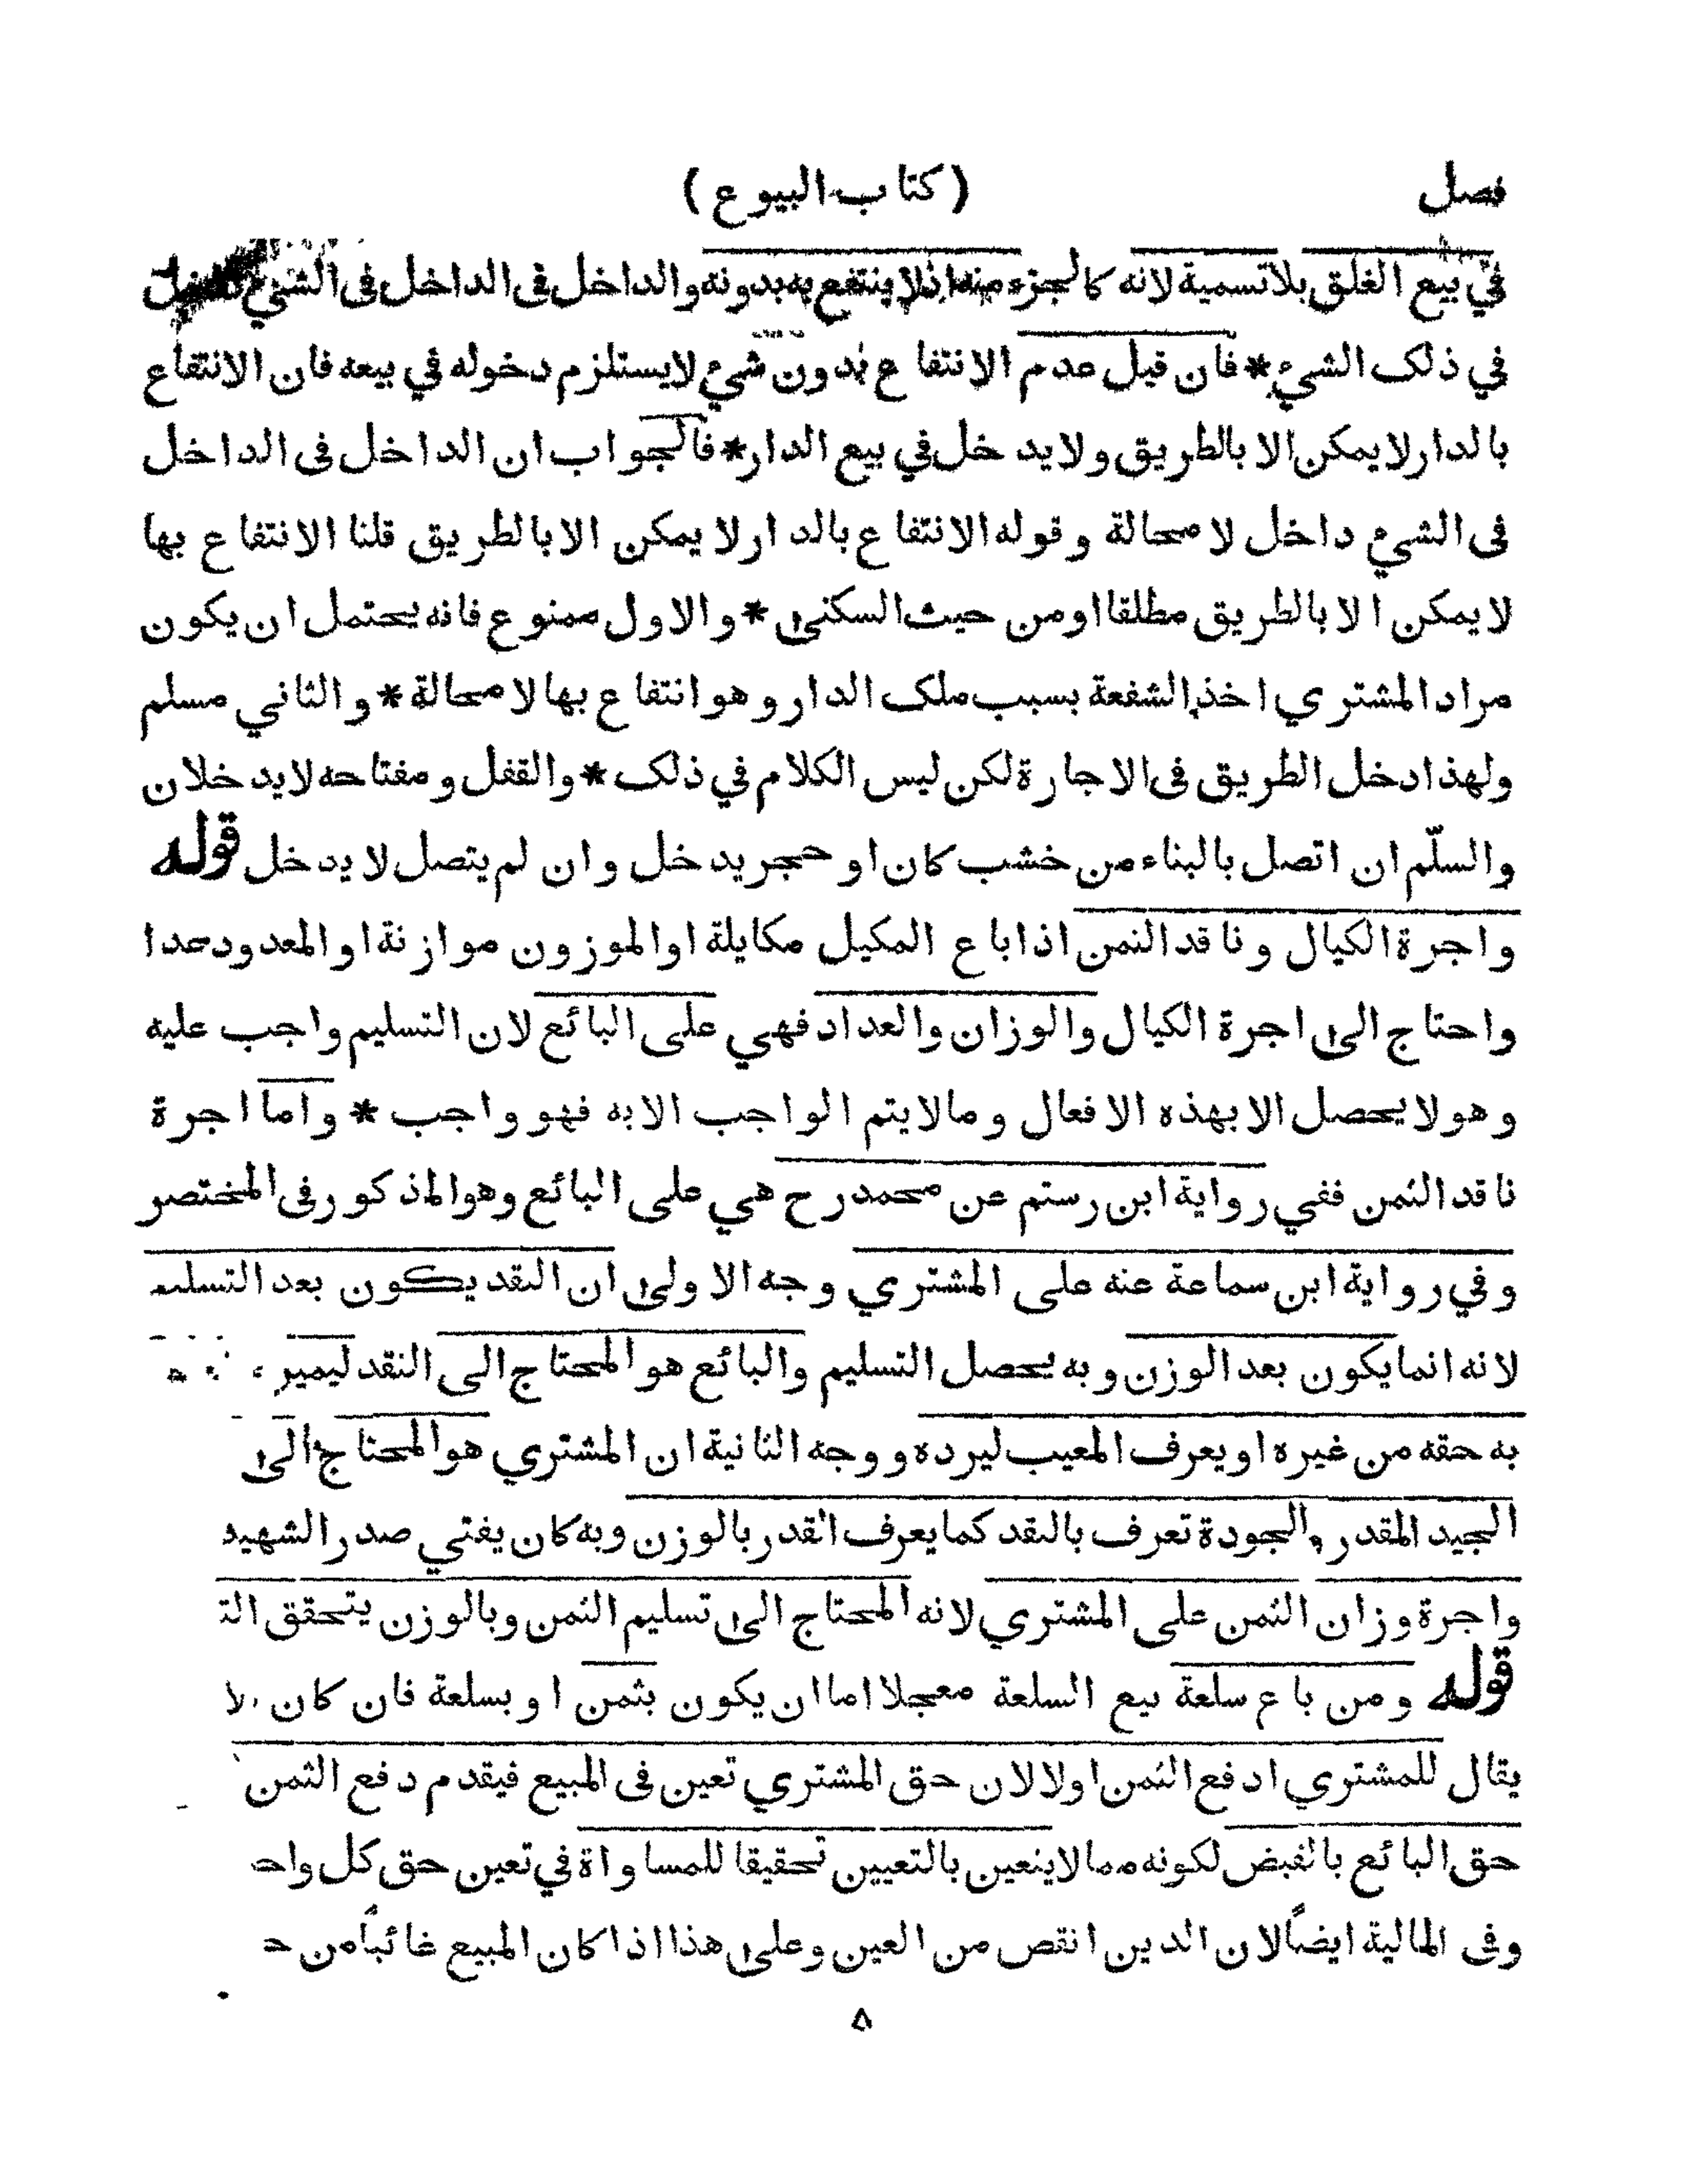 فصل (كتاب البيوع)
في بيع الغلق بلا تسمية لانه كالجزء منه اذ لا ينتفع به بدونه والداخل فى الداخل فى الشيء داخل
في ذلك الشيء * فان قيل عدم الانتفاع بدون شيء لا يستلزم دخوله في بيعه فان الانتفاع
بالدار لا يمكن الا بالطريق ولا يدخل في بيع الدار * فالجواب ان الداخل فى الداخل
فى الشيء داخل لا محالة وقوله الانتفاع بالدار لا يمكن الا بالطريق قلنا الانتفاع بها
لا يمكن الا بالطريق مطلقا او من حيث السكنى * والاول ممنوع فانه يحتمل ان يكون
مراد المشتري اخذ الشفعة بسبب ملك الدار وهو انتفاع بها لا محالة * والثاني مسلم
ولهذا دخل الطريق فى الاجارة لكن ليس الكلام في ذلك * والقفل ومفتاحه لا يدخلان
والسلّم ان اتصل بالبناء من خشب كان او حجر يدخل وان لم يتصل لا يدخل قوله
واجرة الكيال وناقد الثمن اذا باع المكيل مكايلة او الموزون موازنة او المعدود عدا
واحتاج الى اجرة الكيال والوزان والعداد فهي على البائع لان التسليم واجب عليه
وهو لا يحصل الا بهذه الافعال وما لا يتم الواجب الا به فهو واجب * واما اجرة
ناقد الثمن ففي رواية ابن رستم عن محمد رح هي على البائع وهو المذكور فى المختصر
وفي رواية ابن سماعة عنه على المشتري وجه الاولى ان النقد يكون بعد التسليم
لانه انما يكون بعد الوزن وبه يحصل التسليم والبائع هو المحتاج الى النقد ليميز
به حقه من غيره او يعرف المعيب ليرده ووجه الثانية ان المشتري هو المحتاج الى
الجيد المقدر والجودة تعرف بالنقد كما يعرف القدر بالوزن وبه كان يفتي صدر الشهيد
واجرة وزان الثمن على المشتري لانه المحتاج الى تسليم الثمن وبالوزن يتحقق
قوله ومن باع سلعة بيع السلعة معجلا اما ان يكون بثمن او بسلعة فان كان
يقال للمشتري ادفع الثمن اولا لان حق المشتري تعين فى المبيع فيقدم دفع الثمن
حق البائع بالقبض لكونه مما لا يتعين بالتعيين تحقيقا للمساواة في تعين حق كل
وفى المالية ايضاً لان الدين انقص من العين وعلى هذا اذا كان المبيع غائباً من
٨